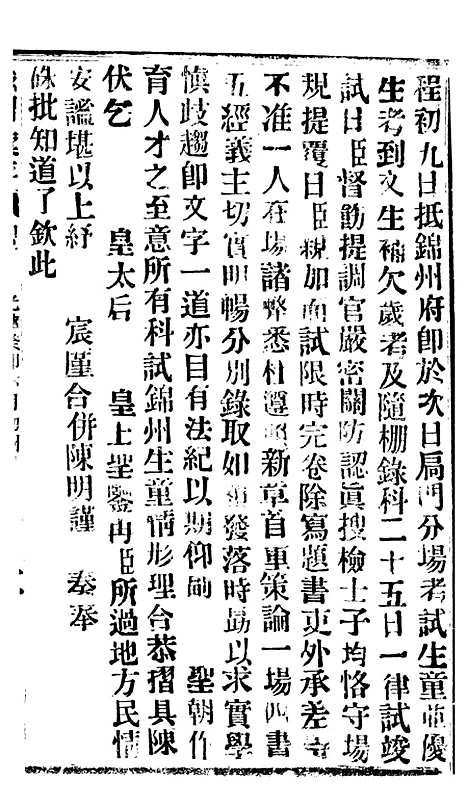 程初九日抵錦州府卽於次日扃門分場考試生童並優
生考到文生補欠歲考及隨棚錄科二十五日一律試竣
試日臣督飭提調官嚴密關防認眞搜檢士子均恪守場
規提覆日臣親加面試限時完卷除寫題書吏外承差
不准一人在場諸弊悉杜遵照新章首重策論一場四書
五經義主切實明暢分別錄取如額發落時勗以求實學
愼歧趨卽文字一道亦自有法紀以期仰副 聖朝作
育人才之至意所有科試錦州生童情形理合恭摺具陳
伏乞 皇太后 皇上聖鑒再臣所過地方民情
安謐堪以上紓 宸廑合併陳明謹 奏奉
硃批知道了欽此